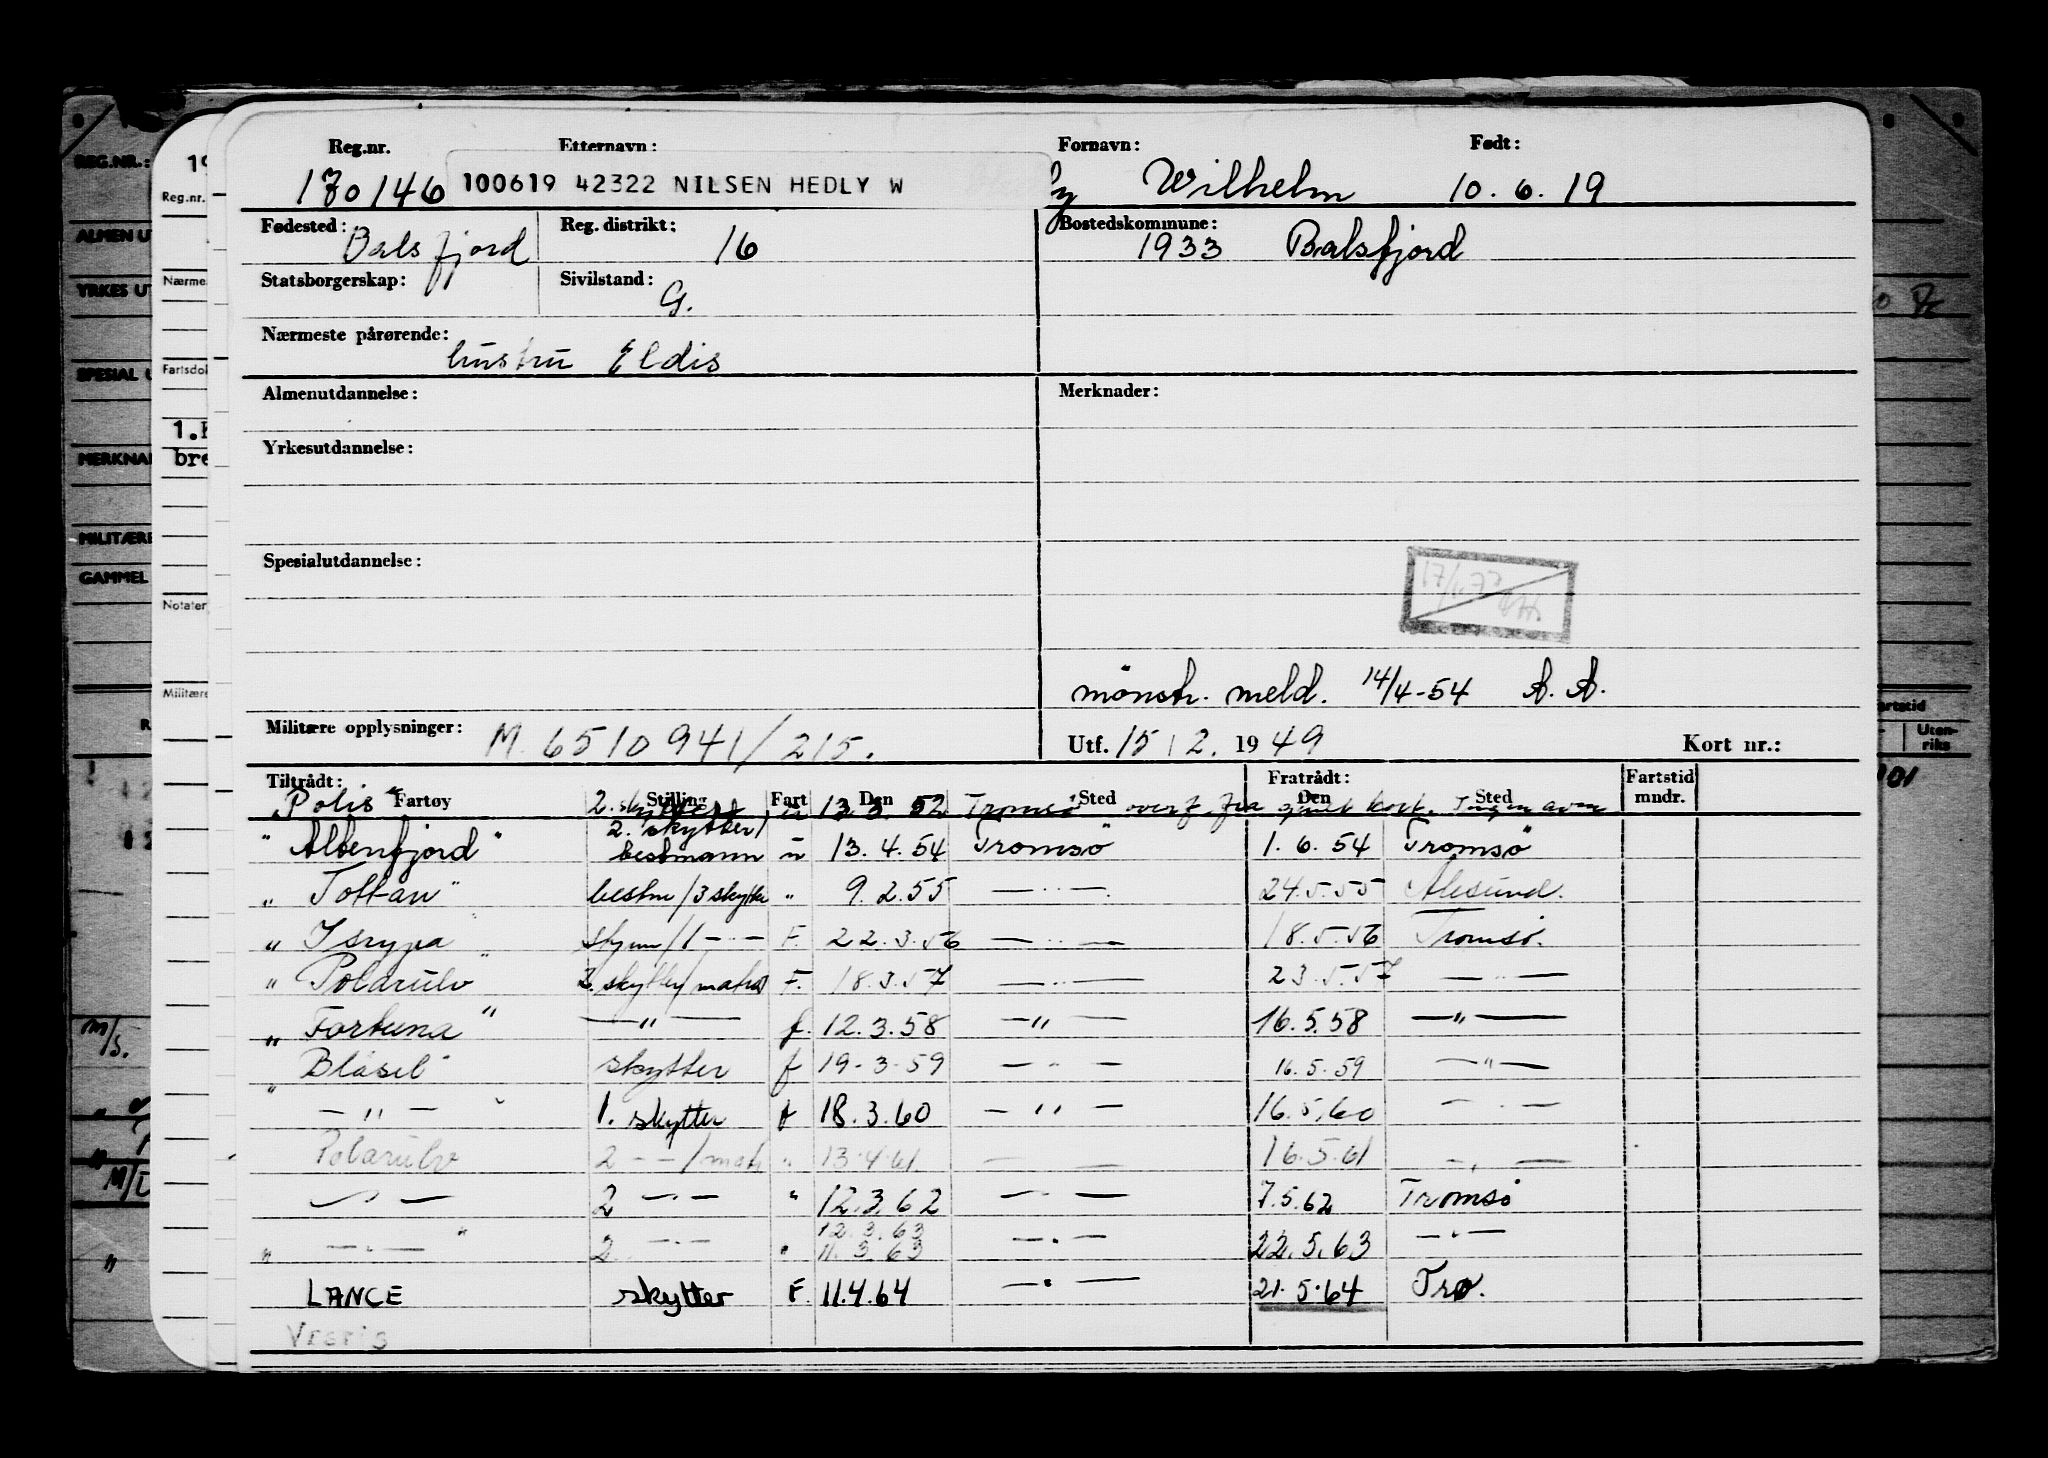 Reg.nr. Etternavn: Fornavn: Født:
170146 100619 42322 NILSEN HEDLY W y Wilhelm 10.6.19
Fødested: Balsfjord Reg. distrikt: 16 Bostedskommune: 1933 Balsfjord
Statsborgerskap: Sivilstand: G.
Nærmeste pårørende: hustru Eldis
Almenutdannelse: Merknader:
Yrkesutdannelse:
Spesialutdannelse:
mönstr. meld. 14/4-54 A. A.
Militære opplysninger: M 6510941/215. Utf. 15 12. 1949 Kort nr.:
Tiltrådt: Fratrådt: Fartstid
Fartøy Stilling Fart Den Sted Den Sted mndr.
"Polis" 13.3.52 Tromsø overf. fra kort.
" Altenfjord " 2. skytter/ bestmann u 13.4.54 Tromsö 1.6.54 Tromsö
" Tottan " bestm/3 skytter " 9.2.55 — " — 24.5.55 Ålesund.
" Isrypa " F. 22.3.56 — " — 18.5.56 Tromsö.
" Polarulv " skytter/matros F. 18.3.57 — " — 23.5.57 — " —
" Fortuna " — " — f. 12.3.58 — " — 16.5.58 — " —
" Blåsel " skytter f 19-3-59 — " — 16.5.59 — " —
— " — 1. skytter f 18.3.60 — " — 16.5.60 — " —
Polarulv 2 — " —/matr " 13.4.61 — " — 16.5.61 — " —
— " — 2 — " — " 12.3.62 — " — 7.5.62 Tromsö
12.3.63
" — " — " 2 — " — " 11.3.63 — " — 22.5.63 — " —
LANCE skytter F. 11.4.64 — " — 21.5.64 Trø.
REG.NR.:
ALMEN U
YRKES UT
SPESIAL U
MERKNA
MILITÆRE
GAMMEL
m/s.
19
Reg.nr.
Nærme
Fartsdok
1.
bre
Notater
Militære
artstid
Uten-
riks
01